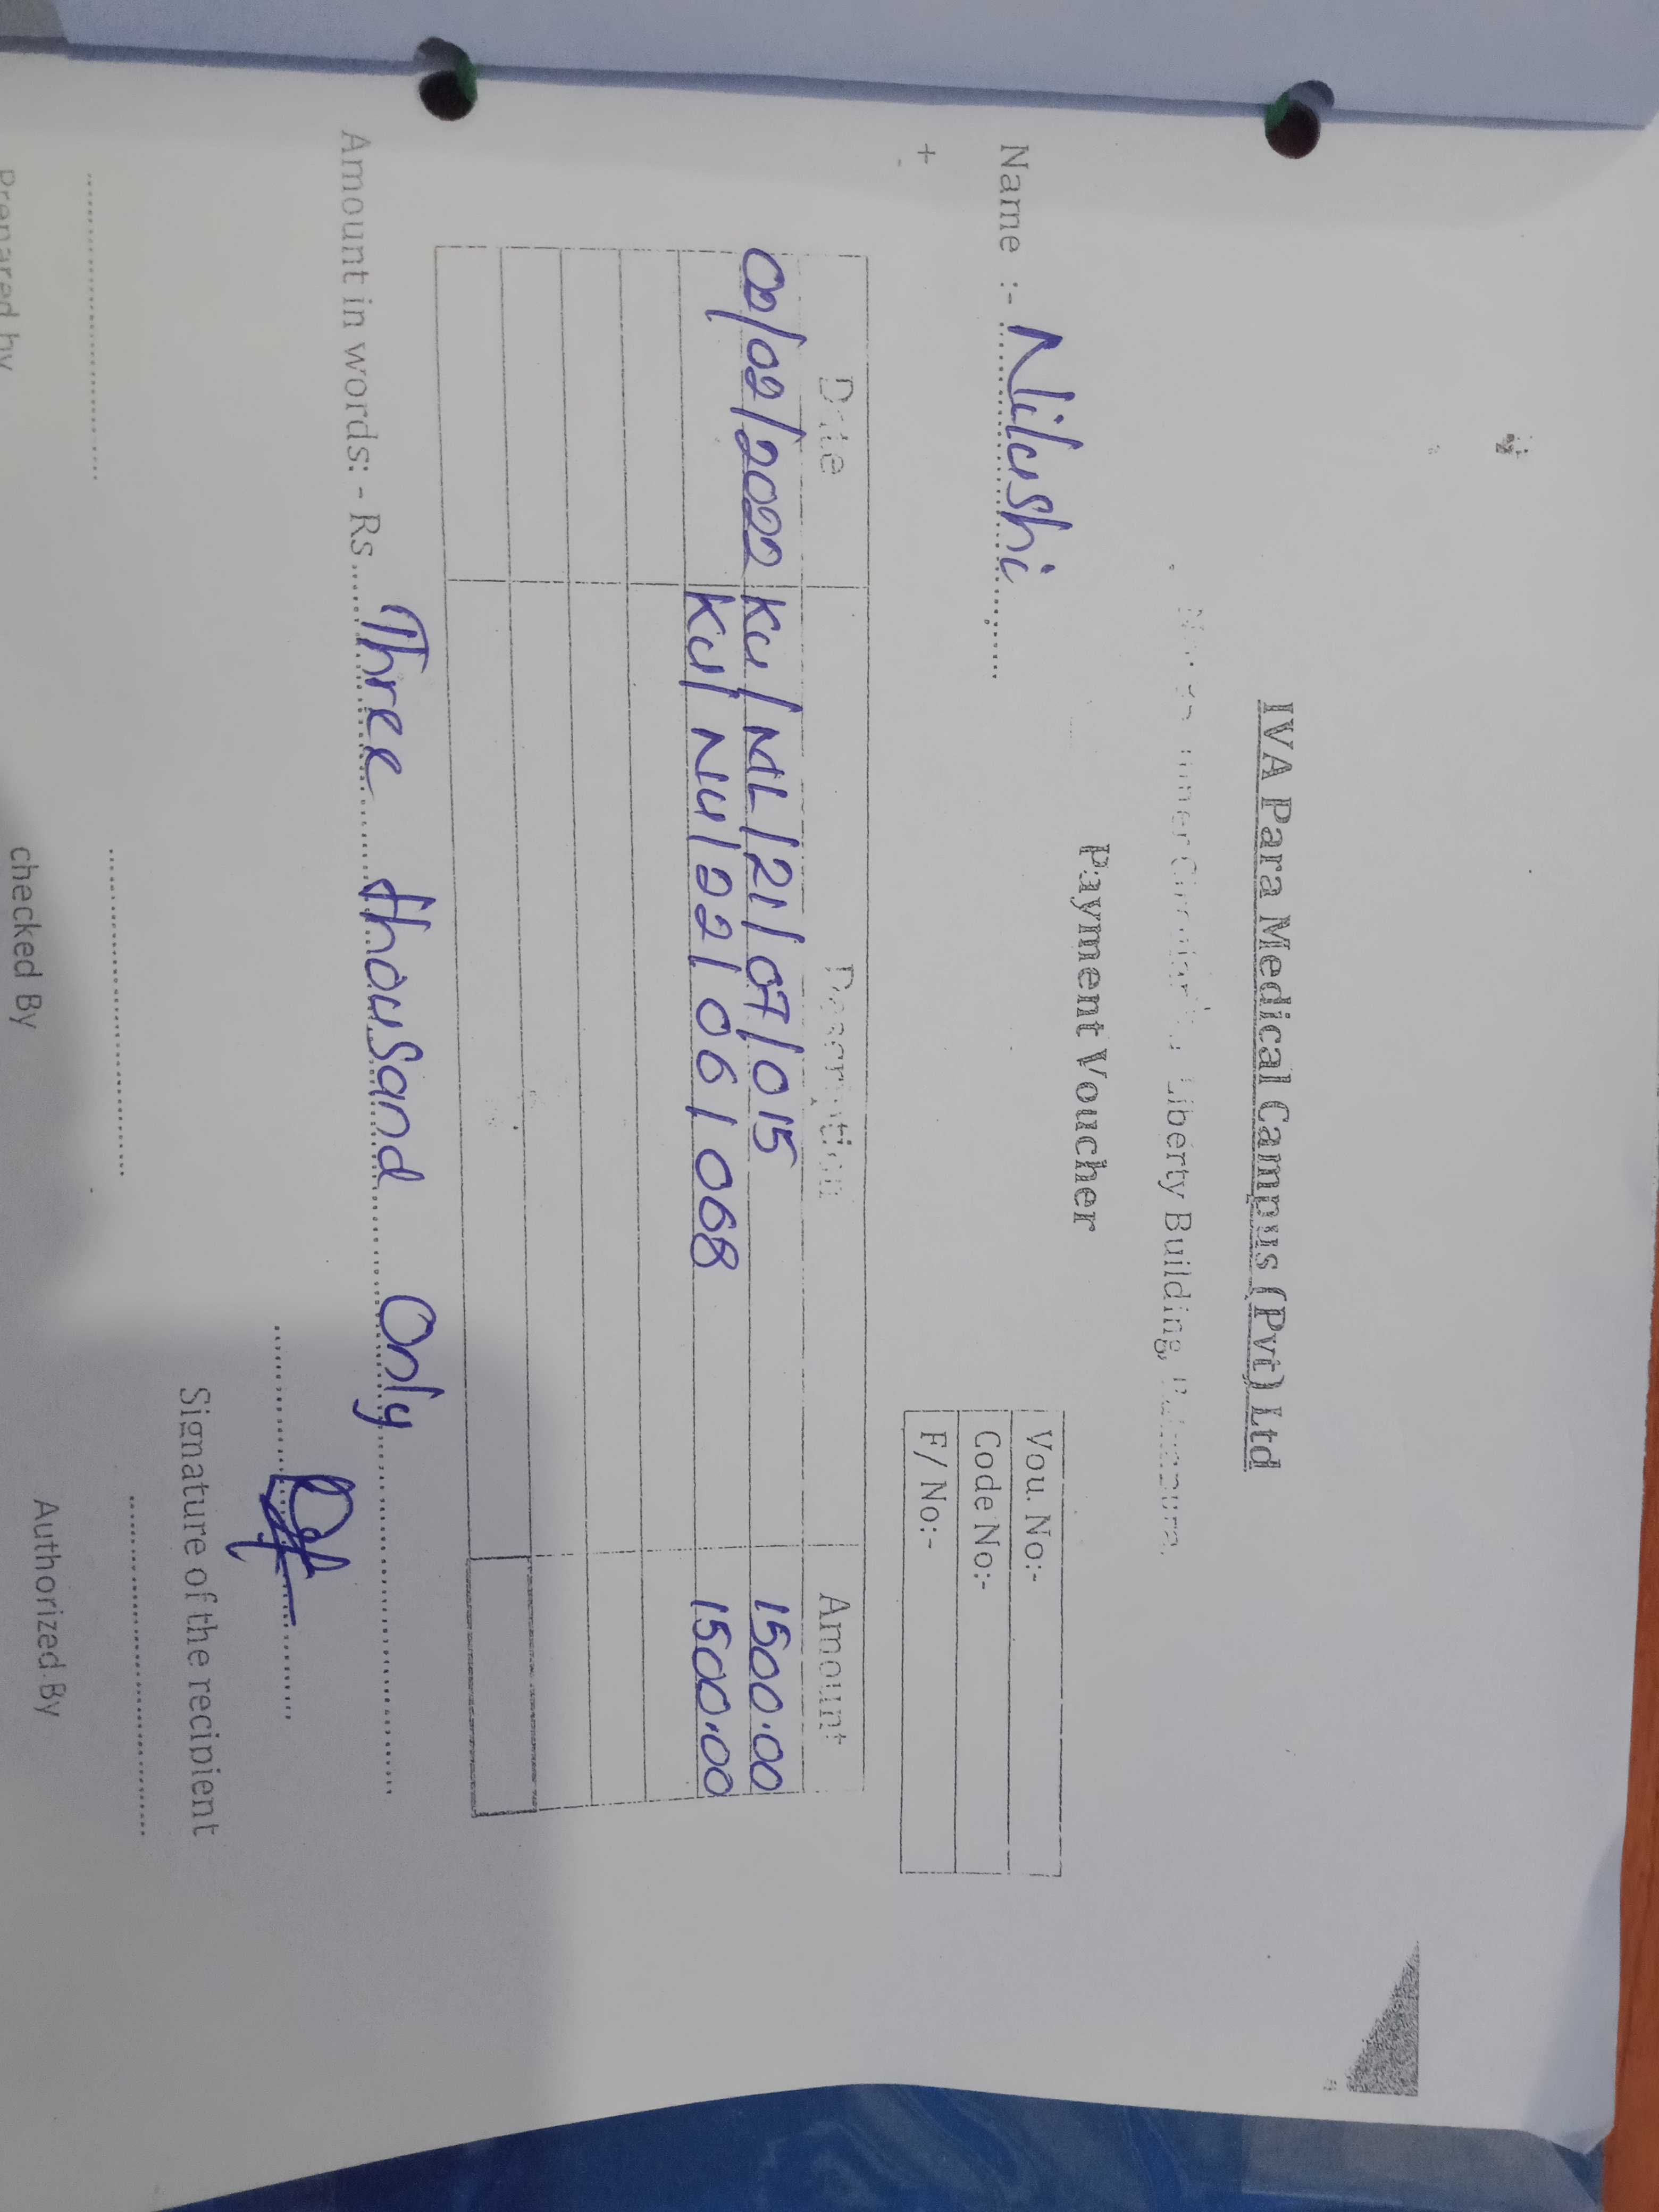 IVA Para Medical Campus (Pvt) Ltd
Liberty Building,
Payment Voucher
Vou. No:-
Code No:-
F/ No:-
Name :- Nilushi
+
Date Description Amount
/02/2022 KU/ML/21/07/015 1500.00
KU/NU/22/06/068 1500.00
Amount in words: - Rs Three thousand Only
Signature of the recipient
Prepared by checked By Authorized By